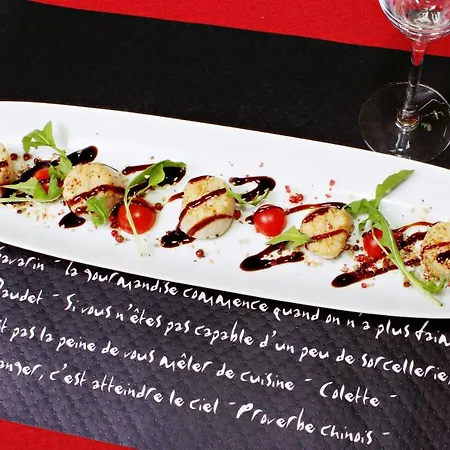 avarin - la gourmandise commence quand on n'a plus faim
Daudet - Si vous n'êtes pas capable d'un peu de sorcellerie,
t pas la peine de vous mêler de cuisine - Colette -
anger, c'est atteindre le ciel - Proverbe chinois -